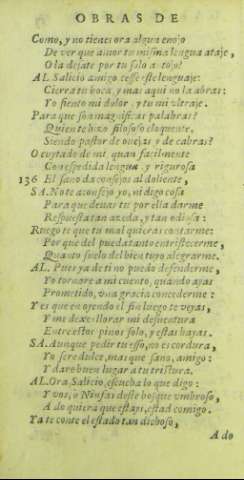 OBRAS DE
Como, y no tienes ora algun enojo
De ver que a tu misma lengua ataje,
O la dejate por tu solo antojo?
AL. Salicio amigo, cesse este lenguaje:
Cierra tu boca, y mas aqui no la abras:
Yo siento mi dolor, y tu mi vltraje.
Para que son magnificas palabras?
Quien te hizo filosofo eloquente,
Siendo pastor de ouejas y de cabras?
O cuytado de mi, quan facilmente
Con espedida lengua, y rigurosa
136 El sano da consejos al doliente,
SA. No te aconsejo yo, ni digo cosa
Para que deuas tu por ella darme
Respuesta tan azeda, y tan odiosa:
Ruego te que tu mal quieras contarme:
Por que del pueda tanto entristecerme,
Quanto suelo del bien tuyo alegrarme.
AL. Pues ya de ti no puedo defenderme,
Yo tornare a mi cuento, quando ayas
Prometido, vna gracia concederme:
Y es que en oyendo el fin luego te vayas,
Y me dexes llorar mi desuentura
Entre estos pinos solo, y estas hayas.
SA. Aunque pedir tu esso, no es cordura,
Yo sere dulce, mas que sano, amigo:
Y dare buen lugar a tu tristura.
AL. Ora Salicio, escucha lo que digo:
Y vos, o Ninfas deste bosque vmbroso,
A do quiera que estays, estad comigo.
Ya te conte el estado tan dichoso,
A do